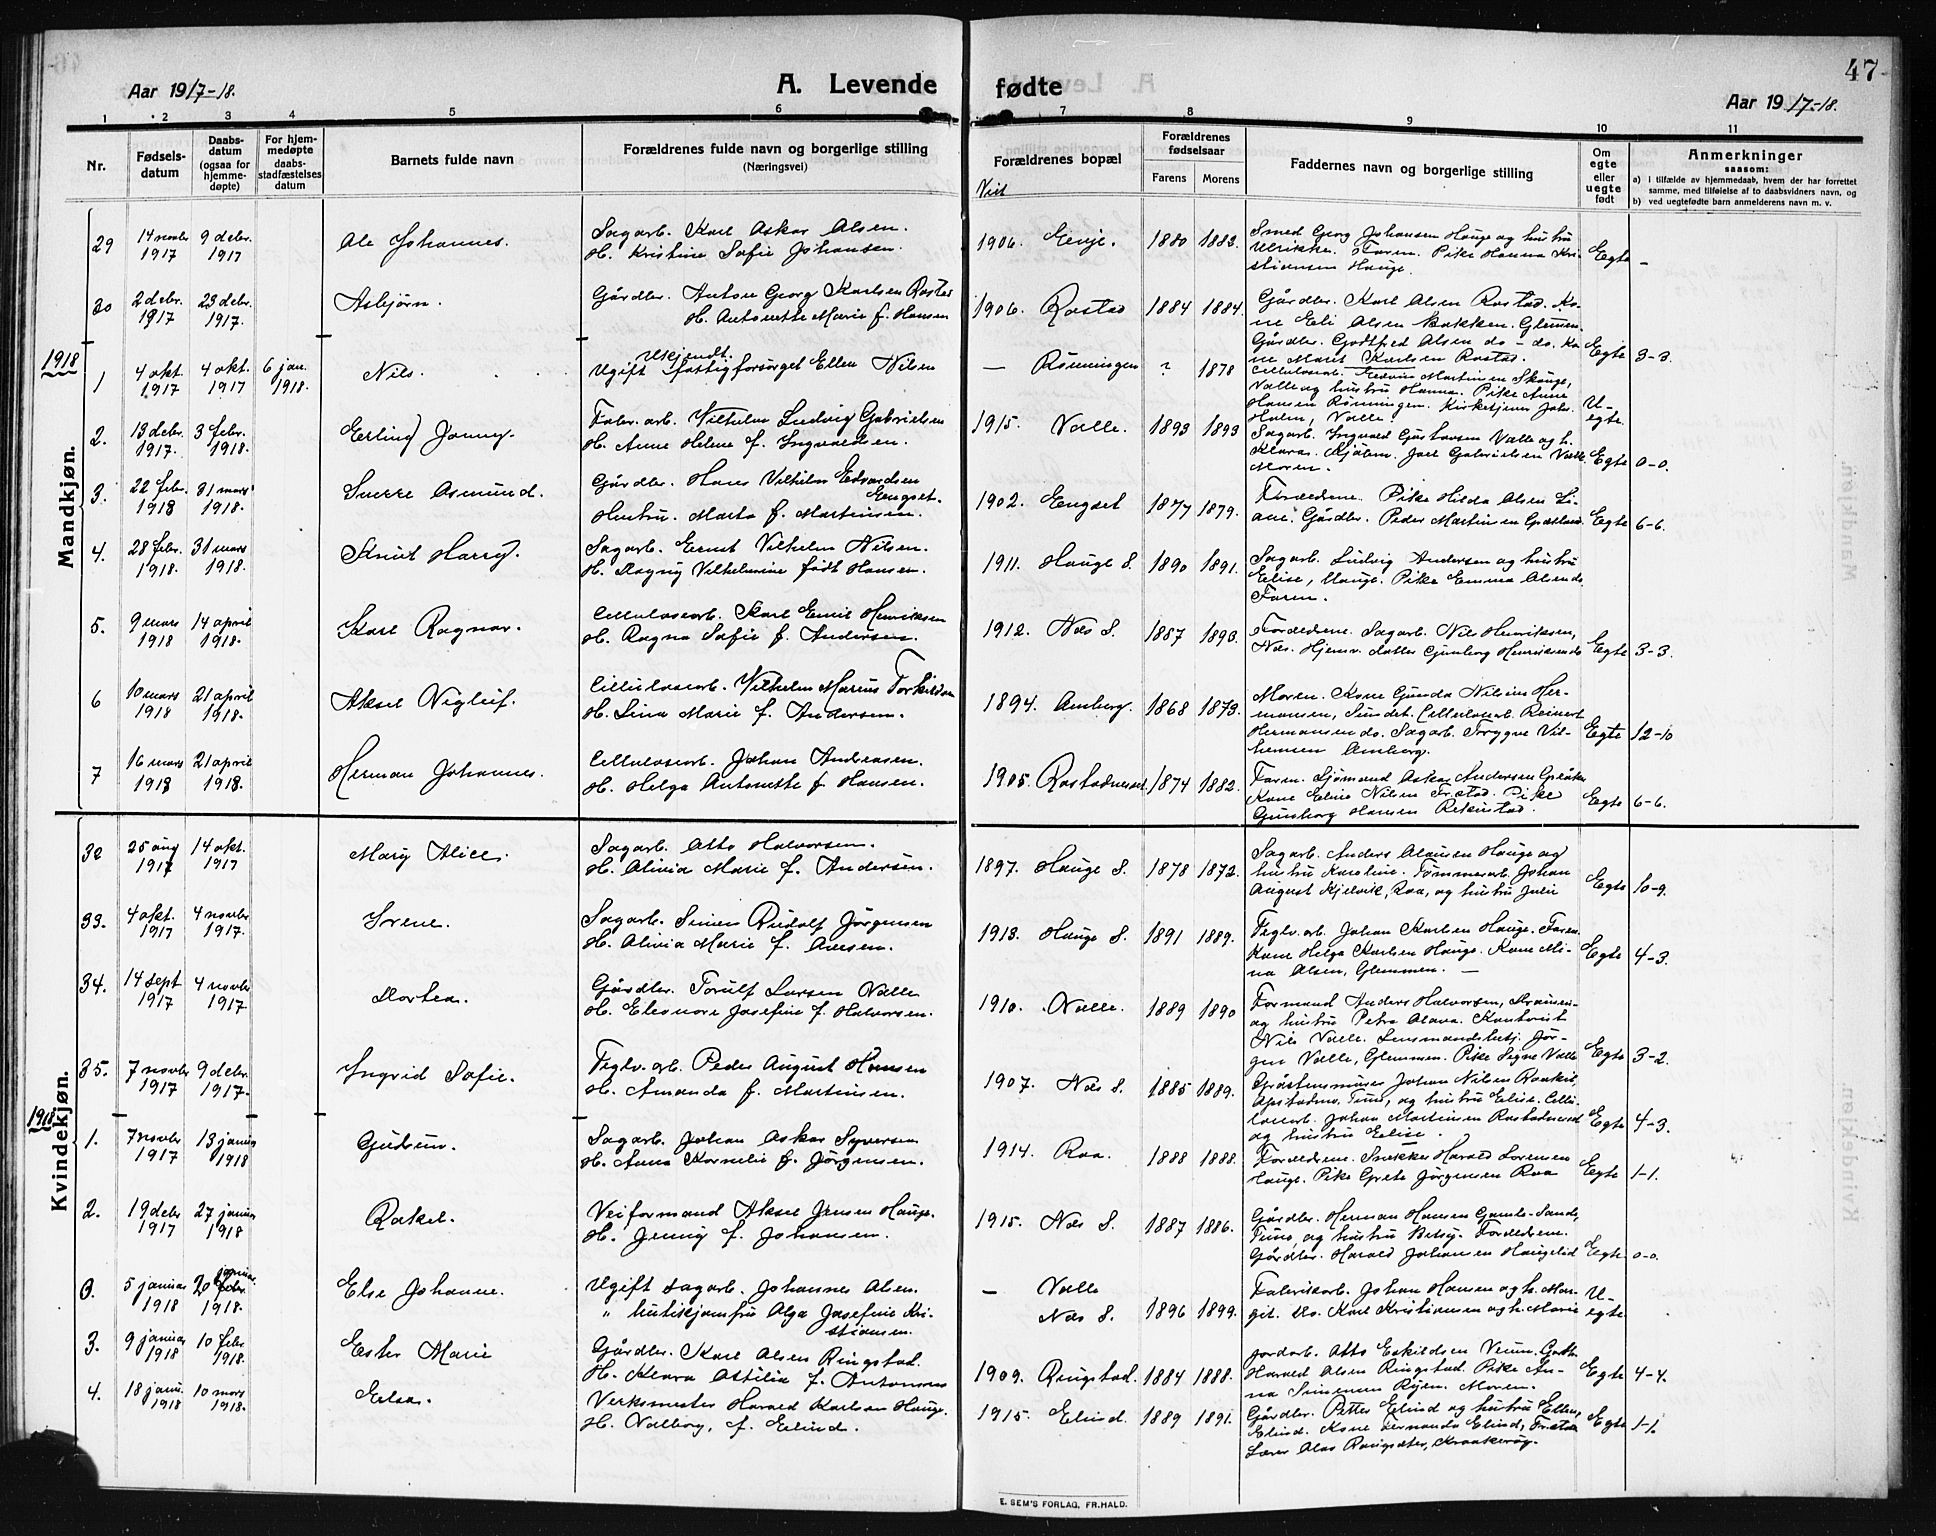 47
Aar 1917-18.
A. Levende
fødte
Aar 1917-18.
1 2 3 4 5 6 7 8 9 10 11
Nr.
Fødsels-
datum
Daabs-
datum
(ogsaa for
hjemme-
døpte)
For hjem-
medøpte
daabs-
stadfæstelses
datum
Barnets fulde navn
Forældrenes fulde navn og borgerlige stilling
(Næringsvei)
Forældrenes bopæl
Viet
Forældrenes
fødselsaar
Farens Morens
Faddernes navn og borgerlige stilling
Om
egte
eller
uegte
født
Anmerkninger
saasom:
a) i tilfælde av hjemmedaab, hvem der har forrettet
samme, med tilføielse af to daabsvidners navn, og
b) ved uegtefødte barn anmelderens navn m. v.
Mandkjøn.
29 14 novbr 1917 9 debr. 1917 Ole Johannes. Sagarb. Karl Oskar Olsen.
H. Kristine Sofie Johansen.
1906. Evje. 1880 1883. Smed Georg Johansen Hauge og hustru
Ulrikke. Faren. Pike Hanna Kri-
stiansen Hauge. Egte –
30 2 debr. 1917 23 debr. 1917. Asbjørn. Gårdbr. Anton Georg Karlsen Rostad
H. Antonette Marie f. Hansen
1906. Rostad 1884 1884. Gårdbr. Karl Olsen Rostad. Ko-
ne Eli Olsen Bakken, Glemmen.
Gårdbr. Godtfred Olsen do – do. Ko
ne Maret Karlsen Rostad. Egte 3-3.
1918
1 4 okt. 1917 4 okt. 1917 6 jan. 1918. Nils. Ukjendt.
Ugift fattigforsørget Ellen Nilsen
– Rønningen ? 1878 Cellulosearb. Edvin Martinsen Skauge,
Valle og hustru Hanna. Pike Anne
Hansen Rønningen. Kirketjener Johs.
Holm, Valle. U-
egte.
2. 13 debr. 1917. 3 febr. 1918. Erling Jonny. Fabr. arb. Vilhelm Ludvig Gabrielsen
H. Anne Helene f. Ingvaldsen.
1915. Valle. 1893 1893 Sagarb. Ingvald Gustavsen Valle og h.
Klara. Kjøbm. Joel Gabrielsen Valle.
Moren. Egte 0-0.
3. 22 febr. 1918 31 mars 1918. Sverre Asmund. Gårdbr. Hans Vilhelm Edvardsen
Engset.
Hustru. Marta f. Martinsen.
1902. Engset 1877 1879. Forældrene. Pike Hilda Olsen Li-
ane. Gårdbr. Peder Martinsen Egte 6-6.
4. 28 febr. 1918. 31 mars 1918. Knut Harry. Sagarb. Ernst Vilhelm Nilsen.
H. Dagny Vilhelmine født Hansen.
1911. Hauge S. 1890 1891. Sagarb. Ludvig Andersen og hustru
Elise, Hauge. Pike Emma Olsen do
Faren.
5. 9 mars 1918 14 april 1918. Karl Ragnar. Cellulosearb. Karl Emil Henriksen
H. Ragna Sofie f. Andersen.
1912. Næs S. 1887 1893. Forældrene. Sagarb. Nils Henriksen,
Næs. Hjemv. datter Gunborg Henriksen do Egte 3-3.
6 10 mars 1918 21 april 1918. Aksel Vigleif. Cellulosearb. Vilhelm Marius Torkildsen
H. Lina Marie f. Andersen.
1894. Omberg. 1868 1873. Moren. Kone Gunda Nilsine Her-
mansen, Sundet. Cellulosearb. Reinert
Hermansen do. Sagarb. Trygve Vil-
helmsen Omberg. Egte 12-10
7 16 mars 1918 21 april 1918. Herman Johannes. Cellulosearb. Johan Andreasen.
H. Helga Antonette f. Hansen.
1905. Rostadneset 1874 1882. Faren. Sjømand Oskar Andersen Græker
Kone Eline Nilsen Træstad. Pike
Gunborg Hansen Rekustad. Egte 6-6.
Kvindekjøn.
32 25 aug 1917 14 okt. 1917 Mary Alice. Sagarb. Otto Halvorsen.
H. Olivia Marie f. Andersen.
1897. Hauge S. 1878 1872. Sagarb. Anders Olausen Hauge og
hustru Karoline. Tømmerarb. Johan
August Kjølvik, Raa, og hustru Juli Egte 10-9.
33. 4 okt. 1917 4 novbr 1917. Irene. Sagarb. Simen Rudolf Jørgensen
H. Olivia Marie f. Olsen.
1913. Hauge S. 1891 1889. Teglv. arb. Johan Karlsen Hauge. Faren.
Kone Helga Karlsen Hauge. Kone Mi-
na Olsen, Glemmen. – Egte 4-3.
34. 14 sept 1917 4 novbr 1917. Dortea. Gårdbr. Torulf Larsen Valle
H. Eleonore Josefine f. Halvorsen.
1910. Valle. 1889 1890 Formand Anders Halvorsen,
og hustru Petra Olava. Kontorist
Nils Valle. Lensmandsbetj. Jør-
gen Valle, Glemmen. Pike Signe Valle Egte 3-2.
35. 7 novbr 1917 9 debr. 1917. Ingrid Sofie. Teglv. arb. Peder August Hansen
H. Amanda f. Martinsen.
1907. Næs S. 1885 1889. Gråstensminer Johan Nilsen Raakil,
Opstadmo, Tune, og hustru Elise. Cellu-
losearb. Johan Martinsen Rostadneset
og hustru Elise. Egte 4-3.
1918
1. 7 novbr 1917 13 januar 1918 Gudrun. Sagarb. Johan Oskar Syversen
H. Anna Kornelie f. Jørgensen.
1914. Raa. 1888 1888. Forældrene. Snekker Harald Lorensen
Hauge. Pike Grete Jørgensen Raa Egte 1-1.
2. 19 debr 1917 27 januar 1918 Rakel. Veiformand Aksel Jensen Hauge.
H. Jenny f. Johansen.
1915. Næs S. 1887 1886. Gårdbr. Herman Hansen Gamle-Sande,
Tune og hustru Betsy. Forældrene.
Gårdbr. Harald Johansen Haugelid Egte 0-0.
3. 5 januar 1918 20 januar 1918. Else Johanne. Ugift sagarb. Johannes Olsen.
" butikjomfru Olga Josefine Kri-
stiansen.
– Valle
Næs S. 1896 1899. Fabrikarb. Johan Hansen og h. Mar-
git. Do. Karl Kristiansen og h. Marie U-
egte
3. 9 januar 1918 10 febr. 1918. Ester Marie Gårdbr. Karl Olsen Ringstad.
H. Klara Ottilia f. Antonsen
1909. Ringstad. 1884 1888. Jordarb. Otto Eskildsen Veum. Gårdbr.
Harald Olsen Ringstad. Pike An-
na Simensen Ryen. Moren. Egte 4-4.
4. 18 janu. 1918 10 mars 1918. Elsa. Verksmester Harald Karlsen Hauge.
H. Valborg, f. Elind.
1915. Elind. 1889 1891. Gårdbr. Petter Elind og hustru Ellen,
Elind. Kone Fernanda Elind, Træstad
Lærer Olas Rangsæter, Kraakerøy. Egte 1-1.
E. SEM'S FORLAG, FR.HALD.